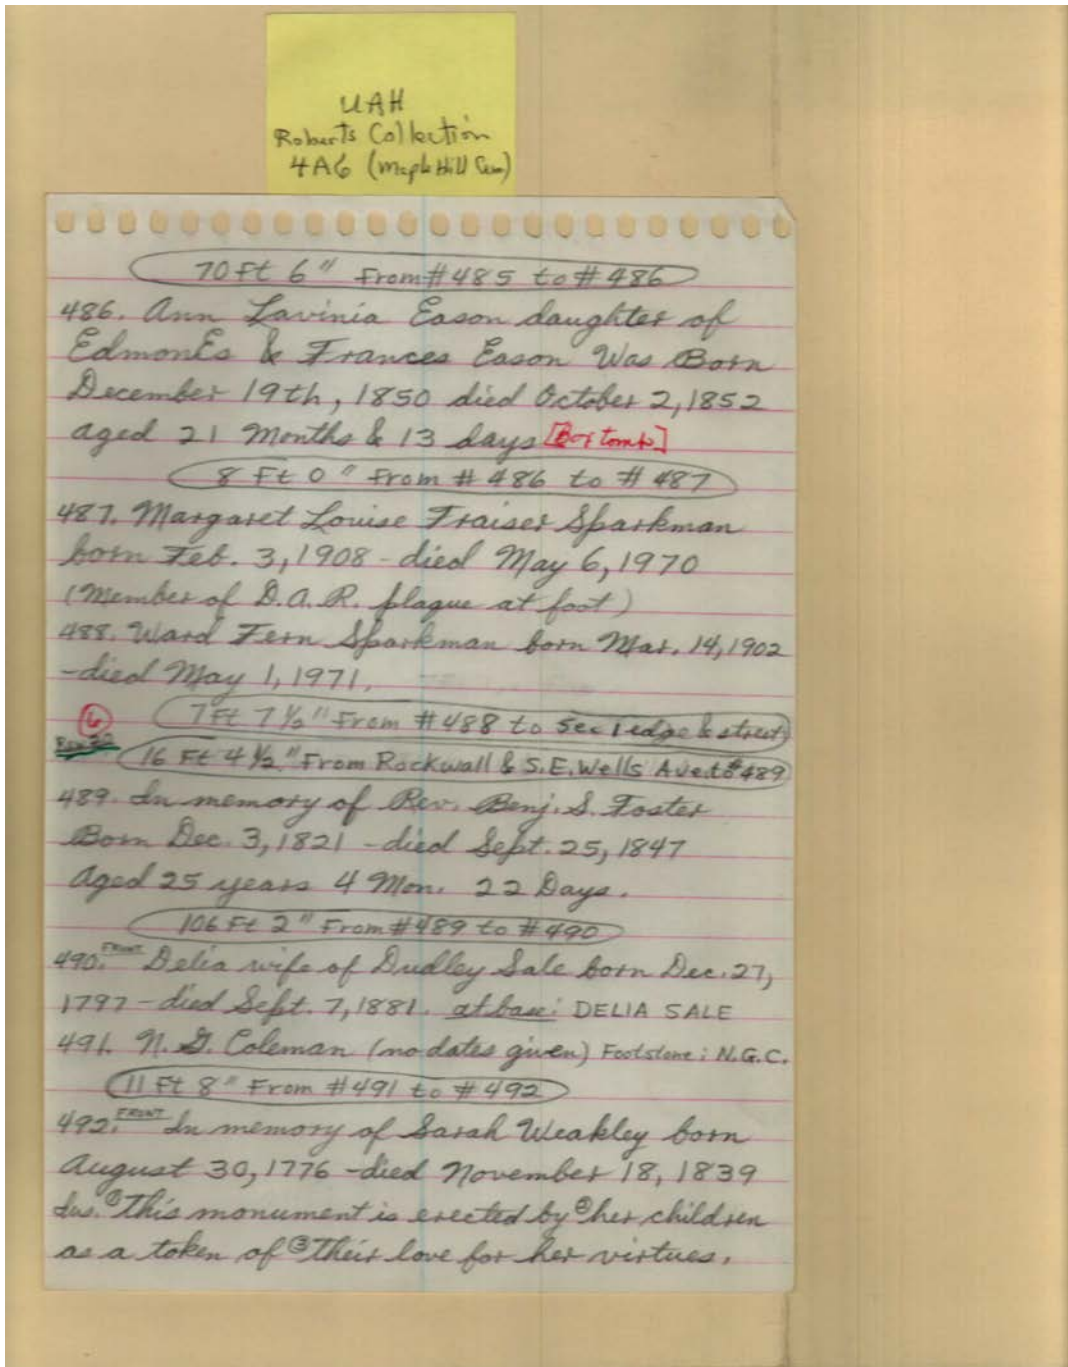 UAH
Roberts Collection
4A6 (Maple Hill Cem)
70 Ft 6" From #485 to #486
486. Ann Lavinia Eason daughter of
Edmonds & Frances Eason Was Born
December 19th, 1850 died October 2, 1852
aged 21 Months & 13 days [Box tomb]
8 Ft 0" From #486 to #487
487. Margaret Louise Fraiser Sparkman
born Feb. 3, 1908 - died May 6, 1970
(Member of D.A.R. plaque at foot)
488. Ward Fern Sparkman born Mar. 14, 1902
-died May 1, 1971.
7 Ft 7 1/2" From #488 to Sec 1 edge & street
6
16 Ft 4 1/2" From Rockwall & S.E. Wells Ave. to #489
489. In memory of Rev. Benj. S. Foster
Born Dec. 3, 1821 - died Sept. 25, 1847
Aged 25 years 4 Mon. 22 Days.
106 Ft 2" From #489 to #490
490. FRONT Delia wife of Dudley Sale born Dec. 27,
1797 - died Sept. 7, 1881. at base: DELIA SALE
491. N. G. Coleman (no dates given) Footstone: N.G.C.
11 Ft 8" From #491 to #492
492. FRONT In memory of Sarah Weakley born
August 30, 1776 - died November 18, 1839
Ins. ① This monument is erected by ② her children
as a token of ③ Their love for her virtues.